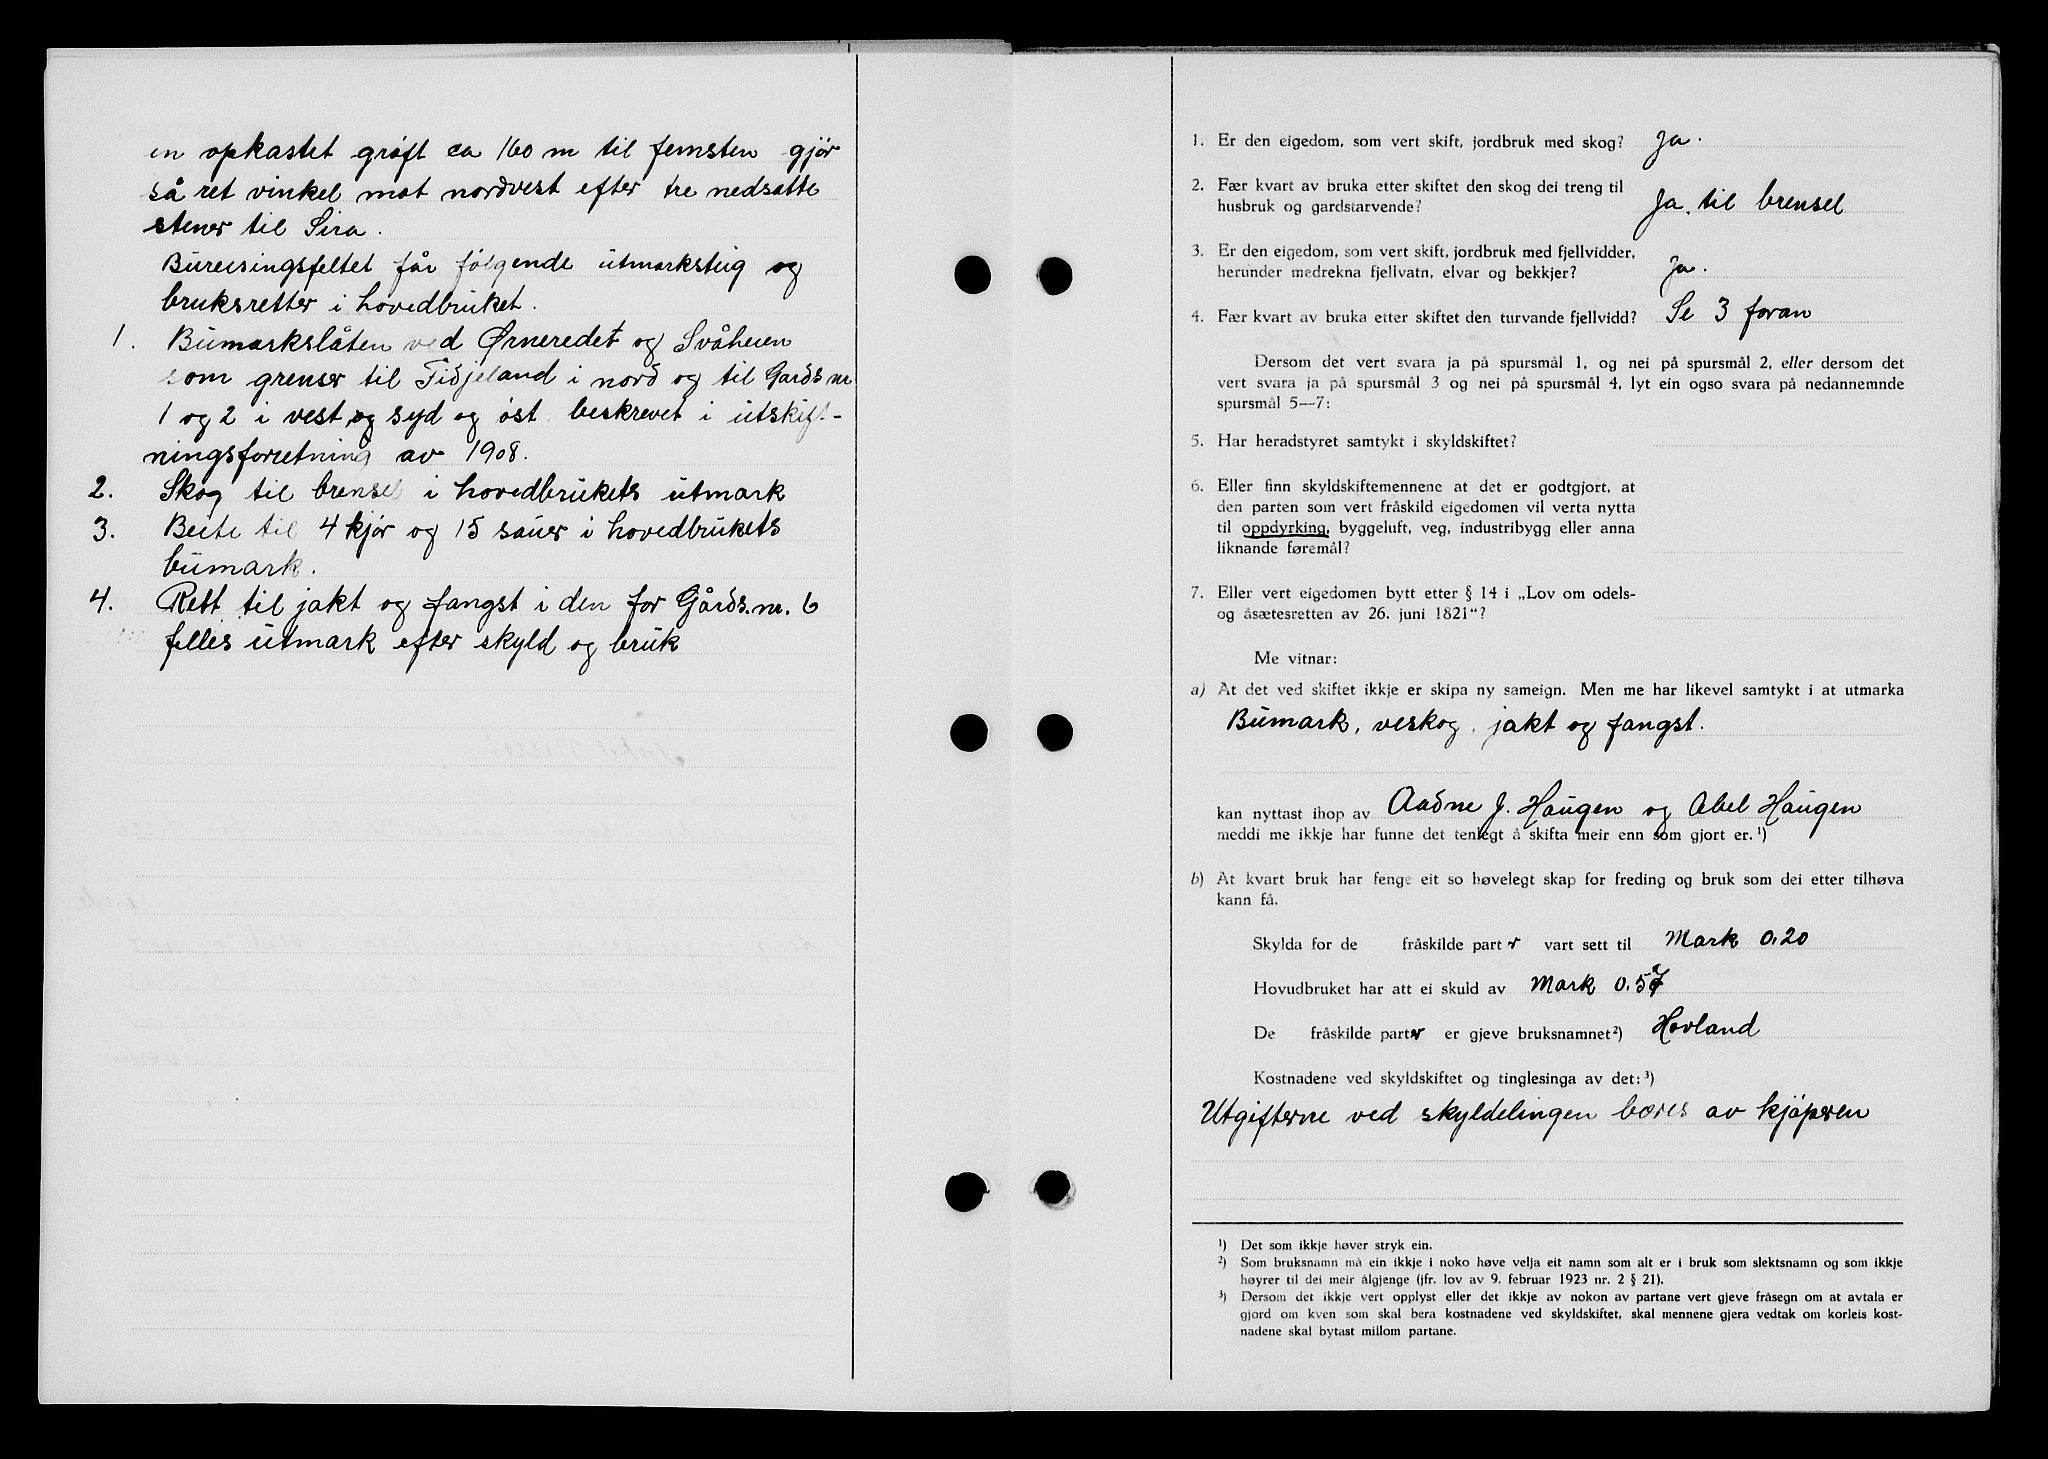 en opkastet grøft ca 160 m til femsten gjør
så ret vinkel mot nordvest efter tre nedsatte
stener til Sira.
Bureisingsfeltet får følgende utmarksteig og
bruksretter i hovedbruket.
1. Bumarkslåten ved Ørneredet og Svåheien
som grenser til Tidjeland i nord og til Gards nr
1 og 2 i vest og syd og øst. beskrevet i utskift-
ningsforretning av 1908.
2. Skog til brensel i hovedbrukets utmark
3. Beite til 4 kjør og 15 sauer i hovedbrukets
bumark.
4. Rett til jakt og fangst i den for Gårds.nr. 6
felles utmark efter skyld og bruk
1. Er den eigedom, som vert skift, jordbruk med skog? Ja.
2. Fær kvart av bruka etter skiftet den skog dei treng til
husbruk og gardstarvende? Ja, til brensel
3. Er den eigedom, som vert skift, jordbruk med fjellvidder,
herunder medrekna fjellvatn, elvar og bekkjer? Ja.
4. Fær kvart av bruka etter skiftet den turvande fjellvidd? Se 3 foran
Dersom det vert svara ja på spursmål 1, og nei på spursmål 2, eller dersom det
vert svara ja på spursmål 3 og nei på spursmål 4, lyt ein ogso svara på nedannemnde
spursmål 5—7:
5. Har heradstyret samtykt i skyldskiftet?
6. Eller finn skyldskiftemennene at det er godtgjort, at
den parten som vert fråskild eigedomen vil verta nytta
til oppdyrking, byggeluft, veg, industribygg eller anna
liknande føremål?
7. Eller vert eigedomen bytt etter § 14 i „Lov om odels-
og åsætesretten av 26. juni 1821"?
Me vitnar:
a) At det ved skiftet ikkje er skipa ny sameign. Men me har likevel samtykt i at utmarka
Bumark, veskog, jakt og fangst.
kan nyttast ihop av Aadne J. Haugen og Abel Haugen
meddi me ikkje har funne det tenlegt å skifta meir enn som gjort er.¹)
b) At kvart bruk har fenge eit so høvelegt skap for freding og bruk som dei etter tilhøva
kann få.
Skylda for de fråskilde parter vart sett til Mark 0,20
Hovudbruket har att ei skuld av Mark 0.57
De fråskilde parter er gjeve bruksnamnet²) Hovland
Kostnadene ved skyldskiftet og tinglesinga av det:³)
Utgifterne ved skyldelingen bæres av kjøperen
¹) Det som ikkje høver stryk ein.
²) Som bruksnamn må ein ikkje i noko høve velja eit namn som alt er i bruk som slektsnamn og som ikkje
høyrer til dei meir ålgjenge (jfr. lov av 9. februar 1923 nr. 2 § 21).
³) Dersom det ikkje vert opplyst eller det ikkje av nokon av partane vert gjeve fråsegn om at avtala er
gjord om kven som skal bera kostnadene ved skyldskiftet, skal mennene gjera vedtak om korleis kost-
nadene skal bytast millom partane.